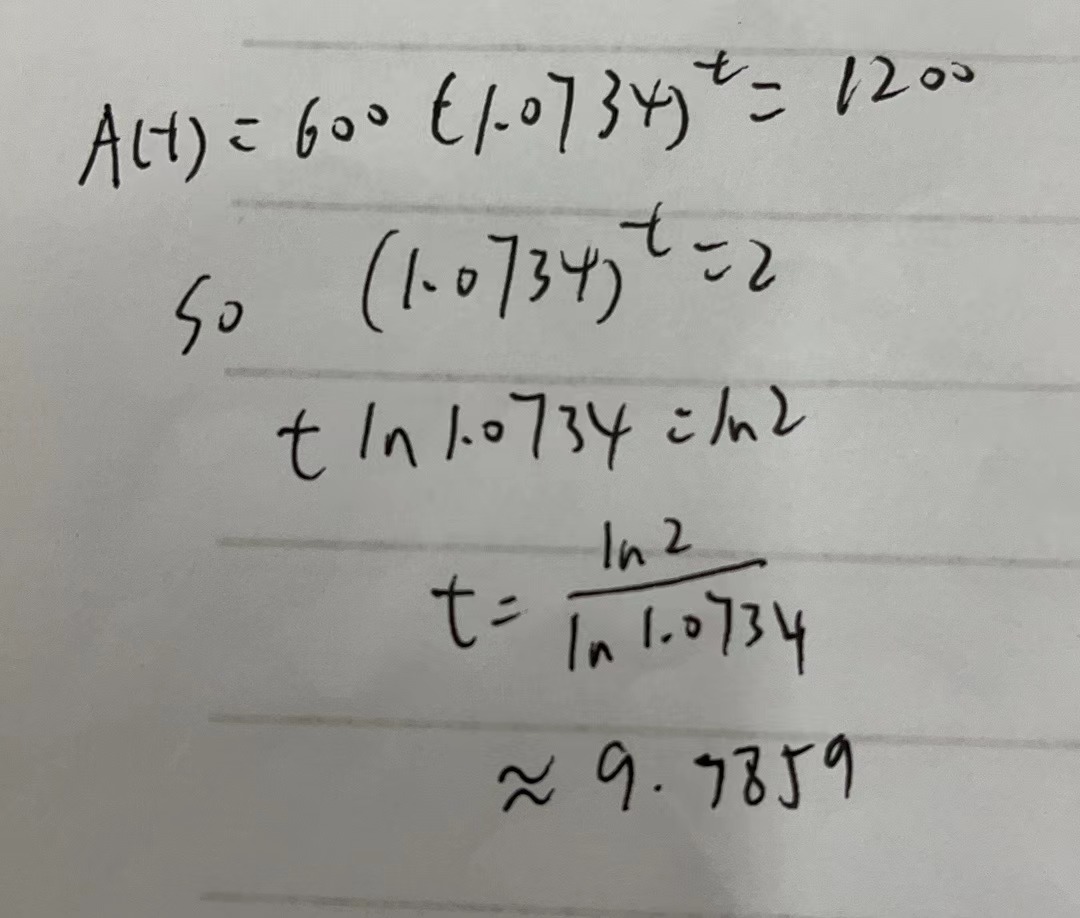 A(t) = 600 (1.0734)^t = 1200
So (1.0734)^t = 2
t ln 1.0734 = ln 2
t = \frac{ln 2}{ln 1.0734}
≈ 9.7859